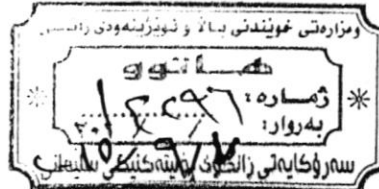 وەزارەتی خوێندنی باڵا و توێژینەوەی زانستی
هاتوو
ژمارە:
بەروار:
سەرۆکایەتی زانکۆی پۆلیتەکنیکی سلێمانی